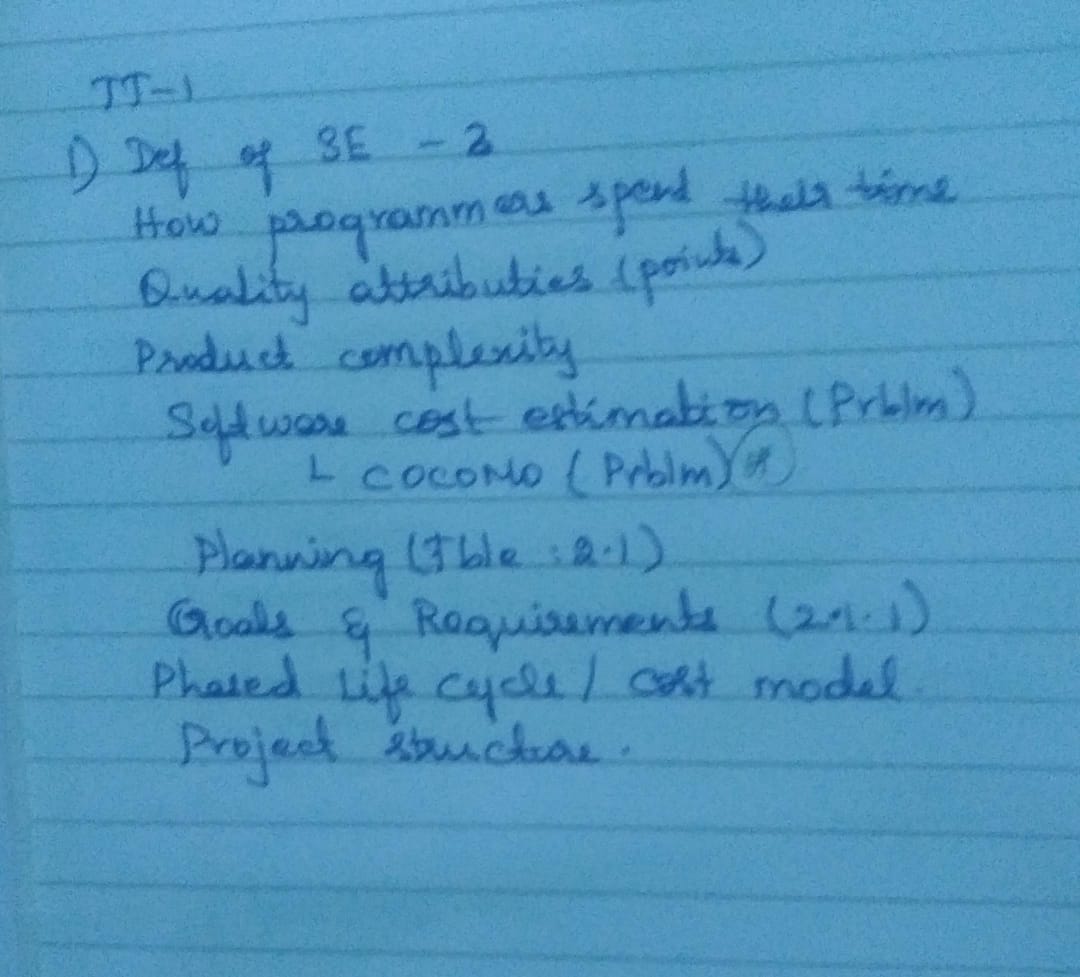 TT-1
1) Def of SE - 2
How programmers spend their time
Quality attributies (points)
Product complexity
Software cost estimation (Prblm)
L COCOMO (Prblm)
Planning (Tble : 2.1)
Goals & Requirements (2.1.1)
Phased Life cycle / cost model.
Project structure.